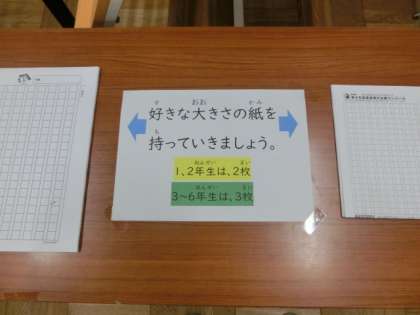 好きな大きさの紙を
持っていきましょう。
1、2年生は、2枚
3〜6年生は、3枚